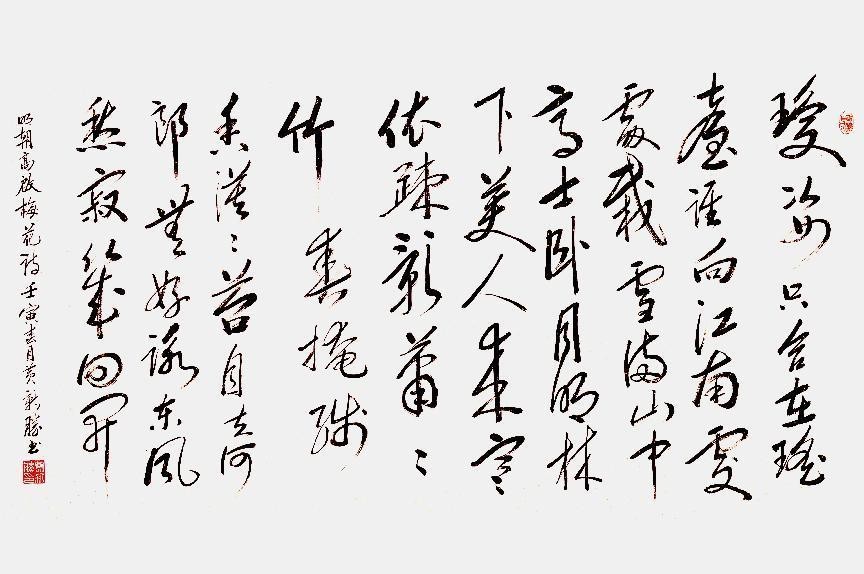 瓊姿只合在瑶
臺誰向江南處
處栽雪滿山中
高士卧月明林
下美人来寒
依疎影蕭〻
竹春掩殘
香漠〻苔自去何
郎無好詠东風
愁寂幾回開
明朝高啟梅花詩壬寅春月黄新勝書